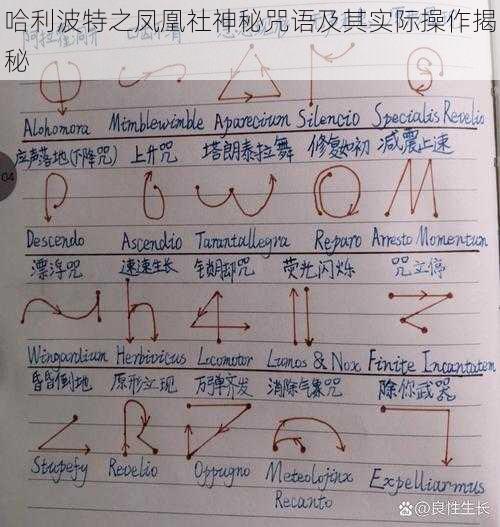 哈利波特之凤凰社神秘咒语及其实际操作揭秘
Alohomora Mimblewimble Aparecium Silencio Specialis Revelio
应声落地(下降咒) 上升咒 塔朗泰拉舞 修复如初 减震止速
04
Descendo Ascendio Tarantallegra Reparo Arresto Momentum
漂浮咒 速速生长 锁腿咒 荧光闪烁 咒立停
Wingardium Herbivicus Locomotor Lumos & Nox Finite Incantatem
昏昏倒地 原形立现 万弹齐发 消除气象咒 除你武器
Stupefy Revelio Oppugno Meteolojinx Recanto Expelliarmus
@良性生长